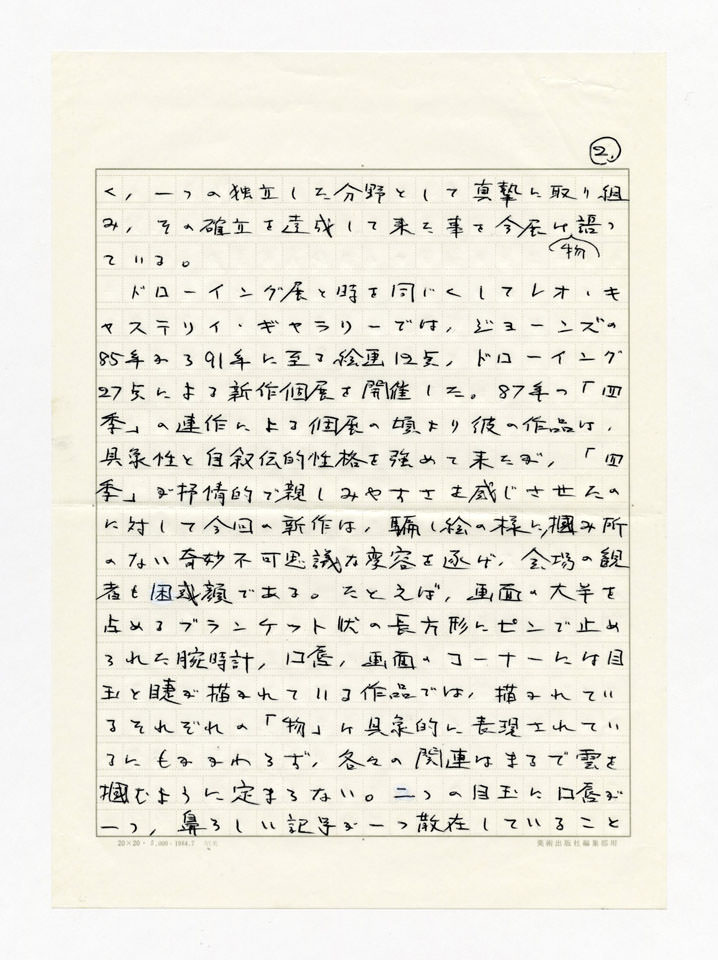 2.
く，一つの独立した分野として真摯に取り組
み，その確立を達成して来た事を今展は物語っ
ている。
ドローイング展と時を同じくしてレオ・キ
ャステリイ・ギャラリーでは，ジョーンズの
85年から91年に至る絵画12点，ドローイング
27点による新作個展を開催した。87年の「四
季」の連作による個展の頃より彼の作品は，
具象性と自叙伝的性格を強めて来たが，「四
季」が抒情的で親しみやすさを感じさせたの
に対して今回の新作は，騙し絵の様に掴み所
のない奇妙不可思議な変容を遂げ，会場の観
者も困惑顔である。たとえば，画面の大半を
占めるブランケット状の長方形にピンで止め
られた腕時計，口唇，画面のコーナーには目
玉と睫が描かれている作品では，描かれてい
るそれぞれの「物」は具象的に表現されてい
るにもかかわらず，各々の関連はまるで雲を
掴むように定まらない。二つの目玉に口唇が
一つ，鼻らしい記号が一つ散在していること
20×20・5,000・1984.7
美術出版社編集部用